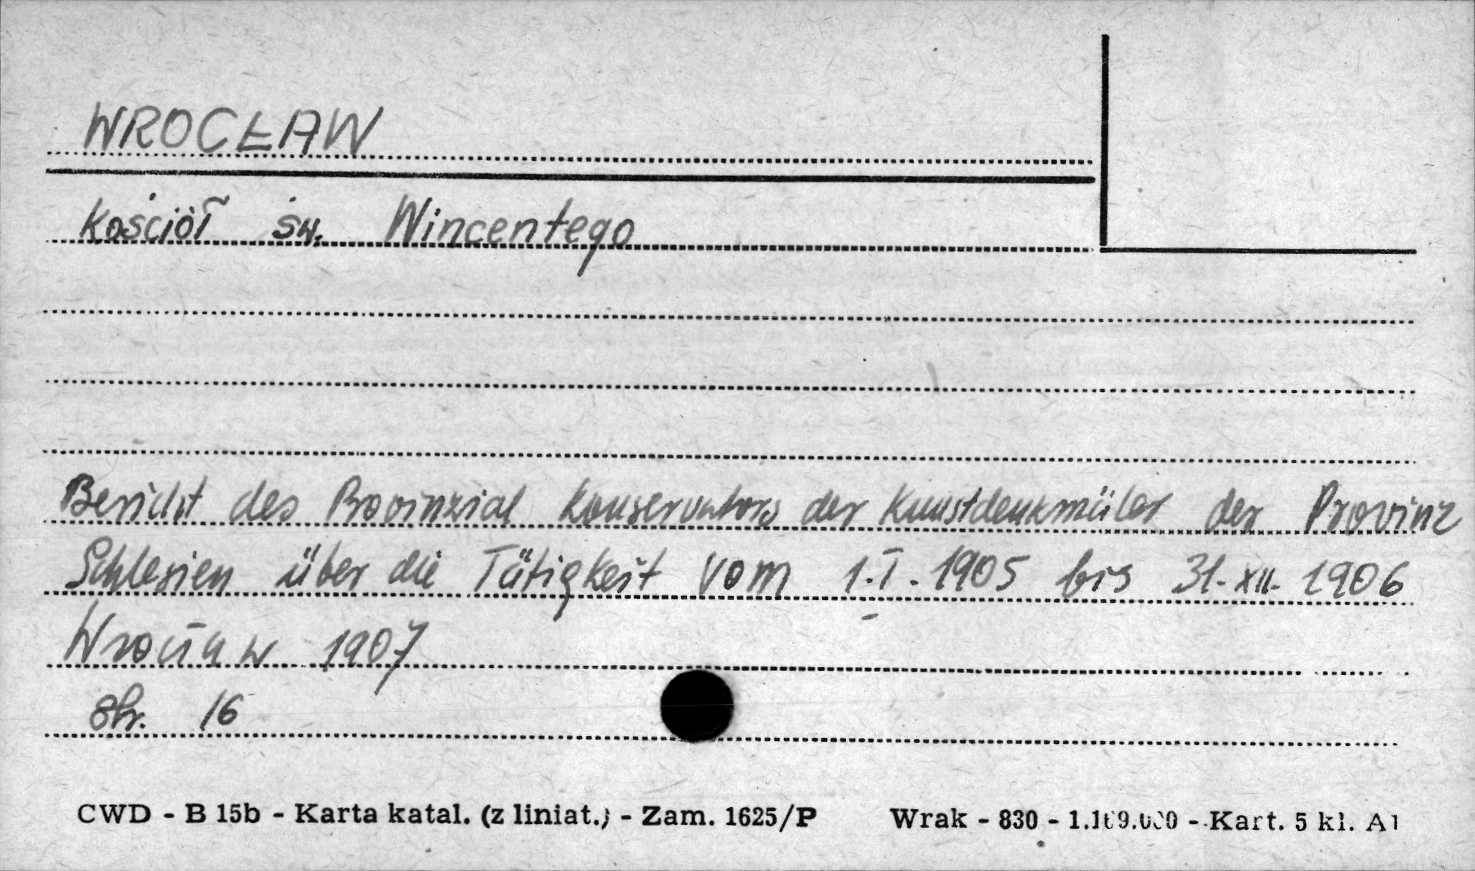 WROCŁAW
Kościół św. Wincentego
Bericht des Provinzial Konservators der Kunstdenkmäler der Provinz
Schlesien über die Tätigkeit vom 1.I.1905 bis 31.XII.1906
Wrocław 1907
str. 16
CWD - B 15b - Karta katal. (z liniat.) - Zam. 1625/P Wrak - 830 - - Kart. 5 kl. A1